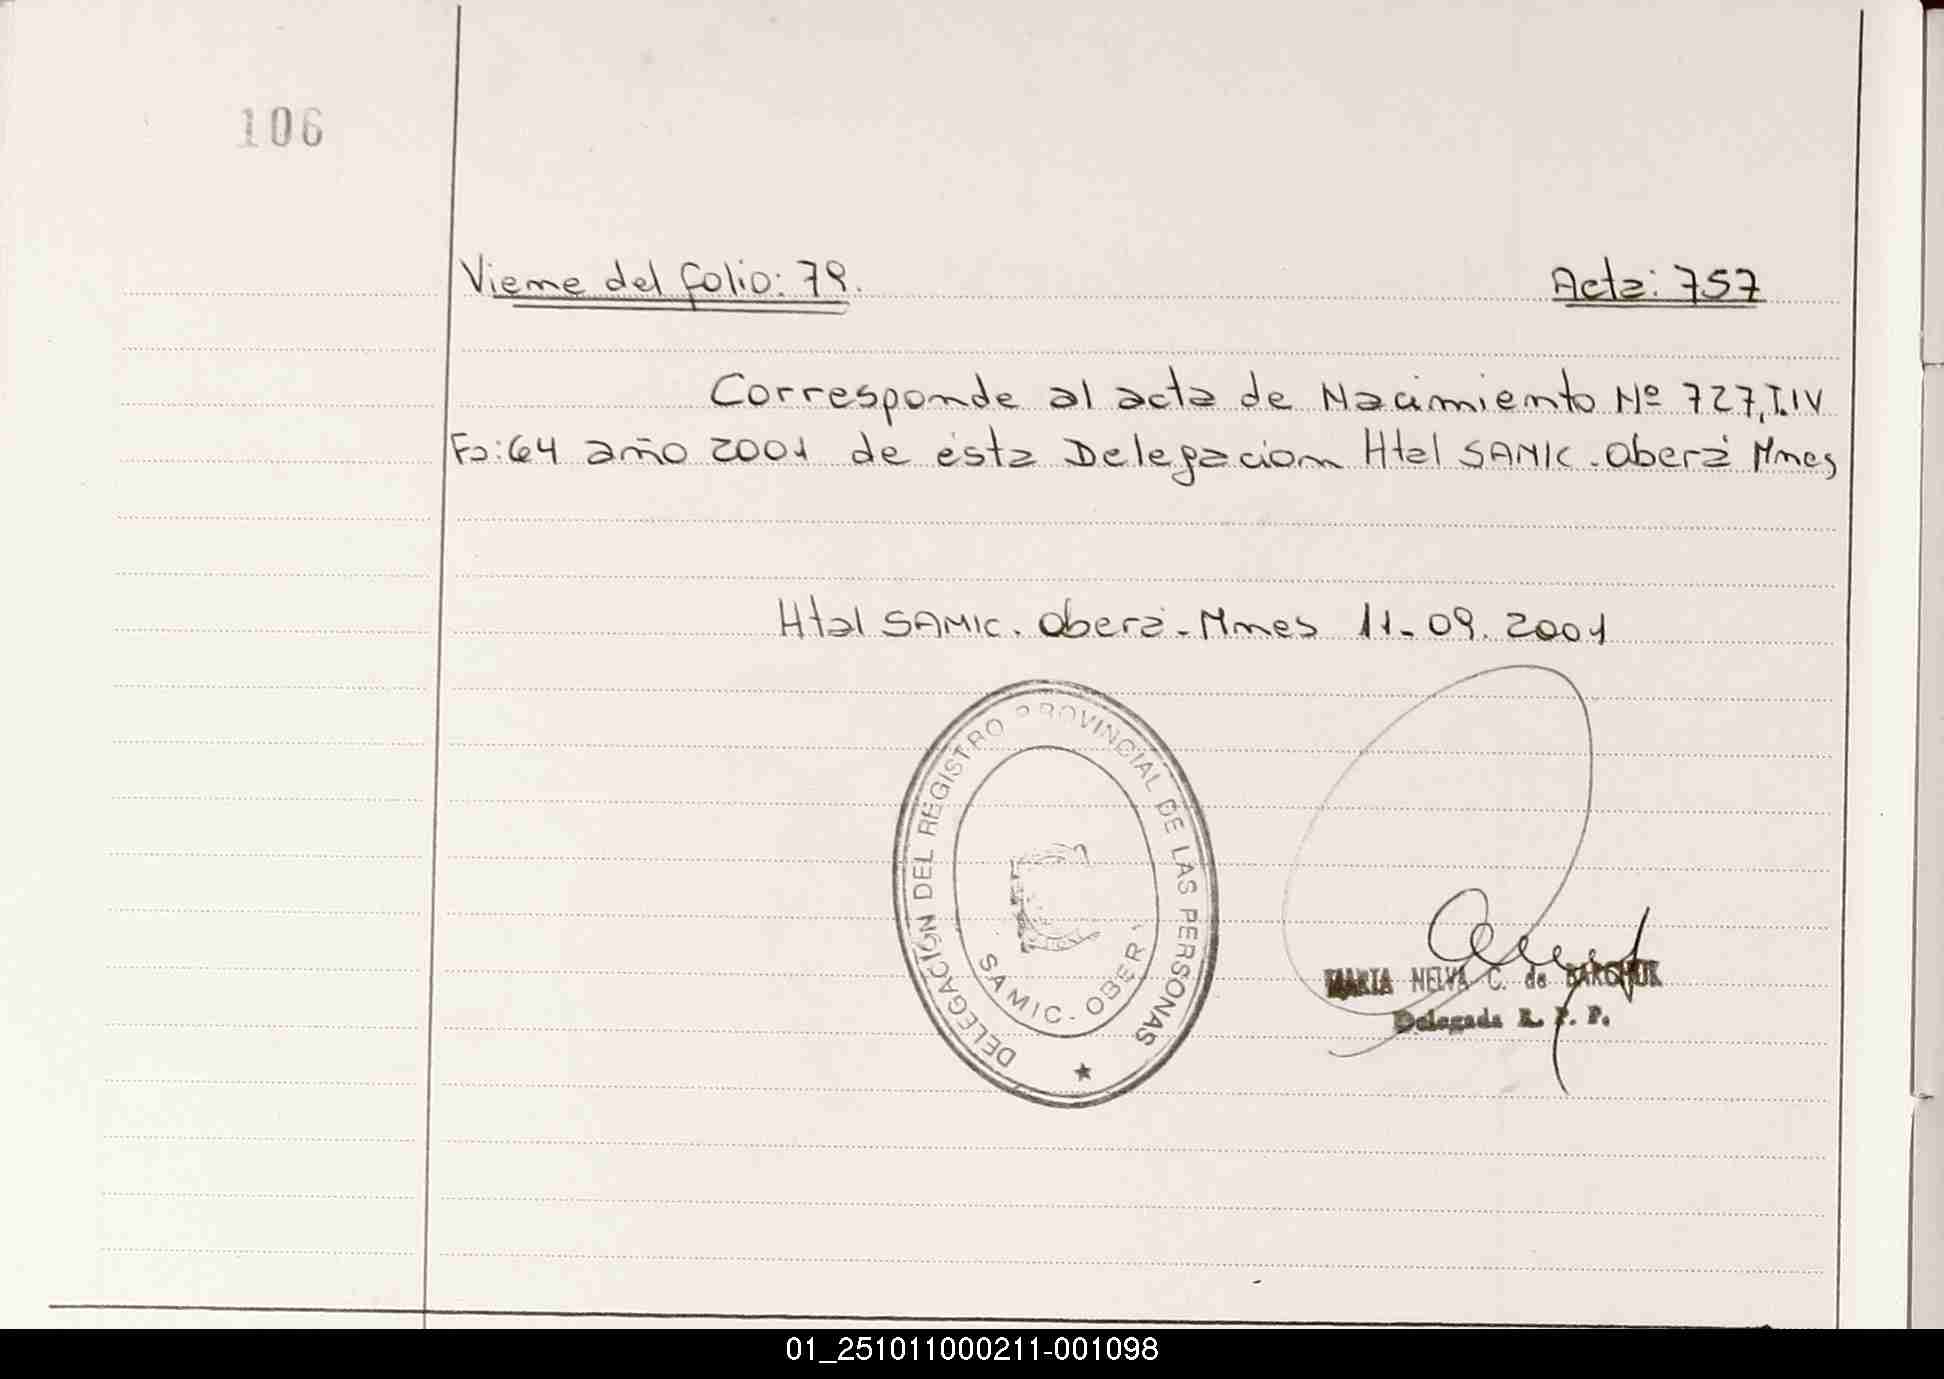 106
Viene del folio: 79.
Acta: 757
Corresponde al acta de Nacimiento Nº 727, T.IV
Fo: 64 año 2001 de ésta Delegacion Htal SAMIC. Oberá Mnes
Htal SAMIC. Oberá - Mnes 11-09.2001
DELEGACIÓN DEL REGISTRO PROVINCIAL DE LAS PERSONAS
SAMIC. OBER
MARIA NELVA C. de
Delegada R. P. P.
01_251011000211-001098